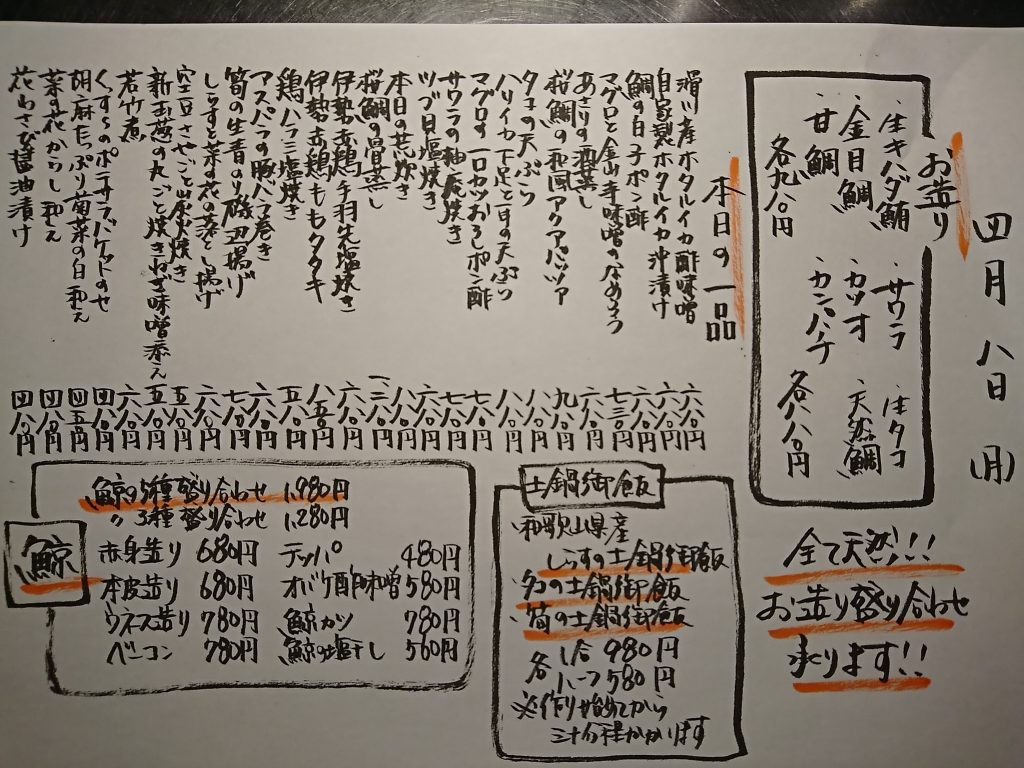 四月八日(月)
お造り
・生キハダ鮪 ・サワラ ・生タコ
・金目鯛 ・カツオ ・天然鯛
・甘鯛 ・カンパチ
各九八〇円 各八八〇円
全て天然!!!
お造り盛り合わせ
承ります!!
本日の一品
滑川産ホタルイカ酢味噌 六八〇円
自家製ホタルイカ沖漬け 六八〇円
鯛の白子ポン酢 七三〇円
マグロと金山寺味噌のなめろう 六八〇円
あさりの酒蒸し 九八〇円
桜鯛の和風アクアパッツァ
タコの天ぷら
ハリイカ下足と豆の天ぷら
マグロの一口カツおろしポン酢
サワラの柚庵焼き
ツブ貝塩焼き
本日の荒炊き
桜鯛の骨蒸し
伊勢赤鶏手羽先塩焼き
伊勢赤鶏ももタタキ
鶏ハラミ塩焼き
アスパラの豚バラ巻き
筍の生青のり磯辺揚げ
しらすと菜の花の落とし揚げ
空豆さやごと炭火焼き
新玉葱の丸ごと焼き 味噌添え
若竹煮 六八〇円
くずらのポテサラバケットのせ 四八〇円
胡麻たっぷり菊菜の白和え 四五〇円
菜の花からし和え 四八〇円
花わさび醤油漬け 四八〇円
土鍋御飯
・和歌山県産
しらすの土鍋御飯
・タコの土鍋御飯
・筍の土鍋御飯
各 1合 980円
ハーフ 580円
※作り始めてから
三十分程かかります
鯨
・鯨の5種盛り合わせ 1,980円
〃 3種盛り合わせ 1,280円
・赤身造り 680円 ・テッパ 480円
・本皮造り 680円 ・オバケ酢味噌 580円
・ウネス造り 780円 ・鯨カツ 780円
・ベーコン 780円 ・鯨の塩干し 560円